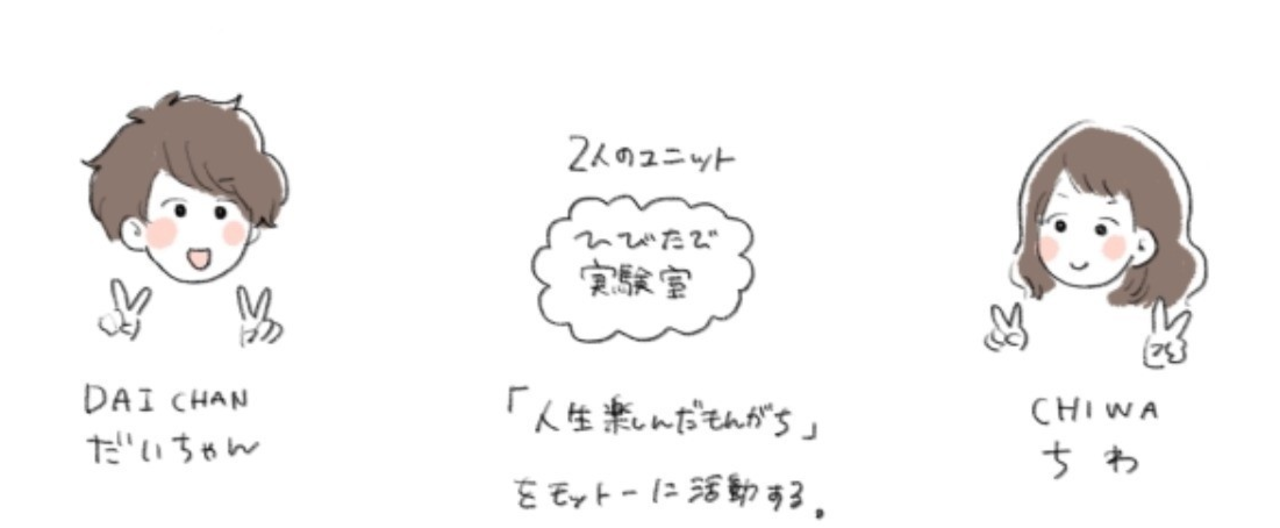 2人のユニット
ひびたび
実験室
DAI CHAN
だいちゃん
「人生楽しんだもんがち」
をモットーに活動する。
CHIWA
ちわ